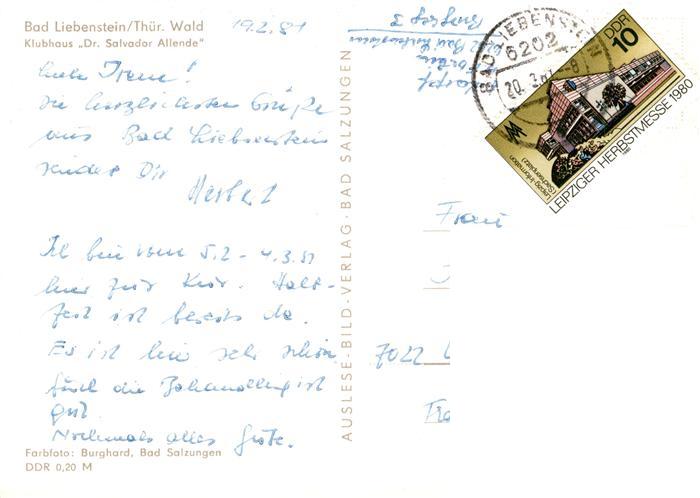 Bad Liebenstein/Thür. Wald
Klubhaus „Dr. Salvador Allende“
19.2.81
Liebe Irene!
die herzlichsten Grüße
aus Bad Liebenstein
sendet Dir
Herbert
Ich bin vom 5.2 - 4.3.81
hier zur Kur. Halb-
zeit ist bereits da.
Es ist hier sehr schön
Auch die Behandlung ist
gut.
Nochmals alles Gute.
Farbfoto: Burghard, Bad Salzungen
DDR 0,20 M
AUSLESE-BILD-VERLAG · BAD SALZUNGEN
6202 Bad Liebenstein
BAD LIEBENSTEIN
6202
20. 2.
DDR
10
Leipzig-Information
(Sachsenplatz)
LEIPZIGER HERBSTMESSE 1980
Frau
7022